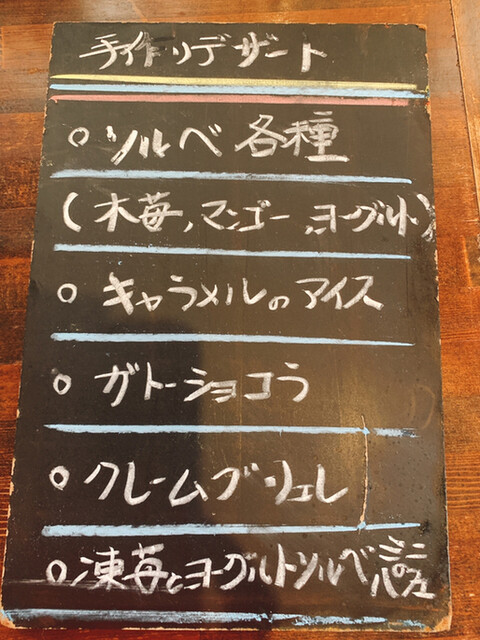 手作りデザート
○ ソルベ 各種
(木苺,マンゴー,ヨーグルト)
○ キャラメルのアイス
○ ガトーショコラ
○ クレームブリュレ
○ 凍苺とヨーグルトソルベ ミニパフェ